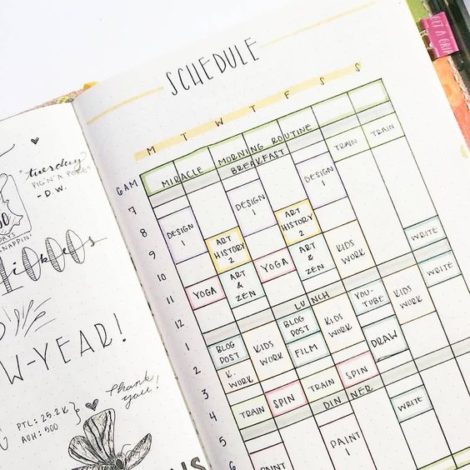 "tuesday
- D.W.
NAPPIN'
1000
W-YEAR!
thank you!
PTL: 25.2K
AOH: 500
US
SCHEDULE
M T W T F S S
6AM MIRACLE MORNING ROUTINE TRAIN TRAIN
BREAKFAST
7
8 DESIGN 1 DESIGN 1 DESIGN 1
9 ART HISTORY 2 ART HISTORY 2 WRITE
10 ART & ZEN ART & ZEN KIDS WORK
11 YOGA YOGA WRITE
LUNCH
12 KIDS WORK YOU-TUBE KIDS WORK
1 BLOG POST KIDS WORK BLOG POST
2 K. WORK FILM KIDS WORK DRAW
3 KIDS WORK
4 TRAIN SPIN TRAIN SPIN WRITE
DINNER
5
6 PAINT 1
ET A GRI